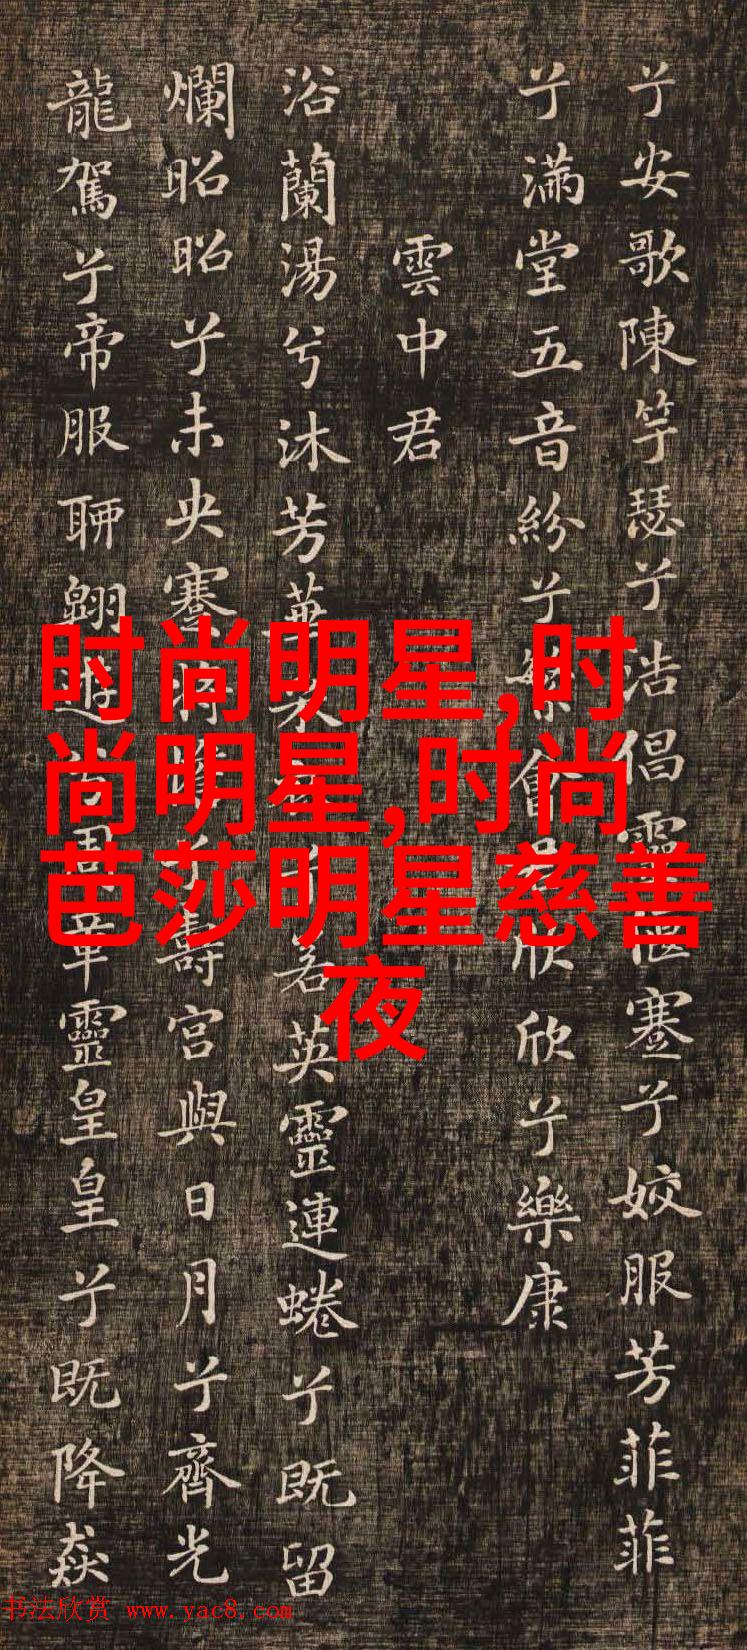 兮安歌陳竽瑟兮浩倡靈偃蹇兮姣服芳菲菲
兮滿堂五音紛兮繁會君欣欣兮樂康
雲中君
浴蘭湯兮沐芳華采衣兮若英靈連蜷兮既留
爛昭昭兮未央蹇將憺兮壽宮與日月兮齊光
龍駕兮帝服聊翱遊兮周章靈皇皇兮既降猋
时尚明星,时
尚明星,时尚
芭莎明星慈善
夜
书法欣赏 www.yac8.com